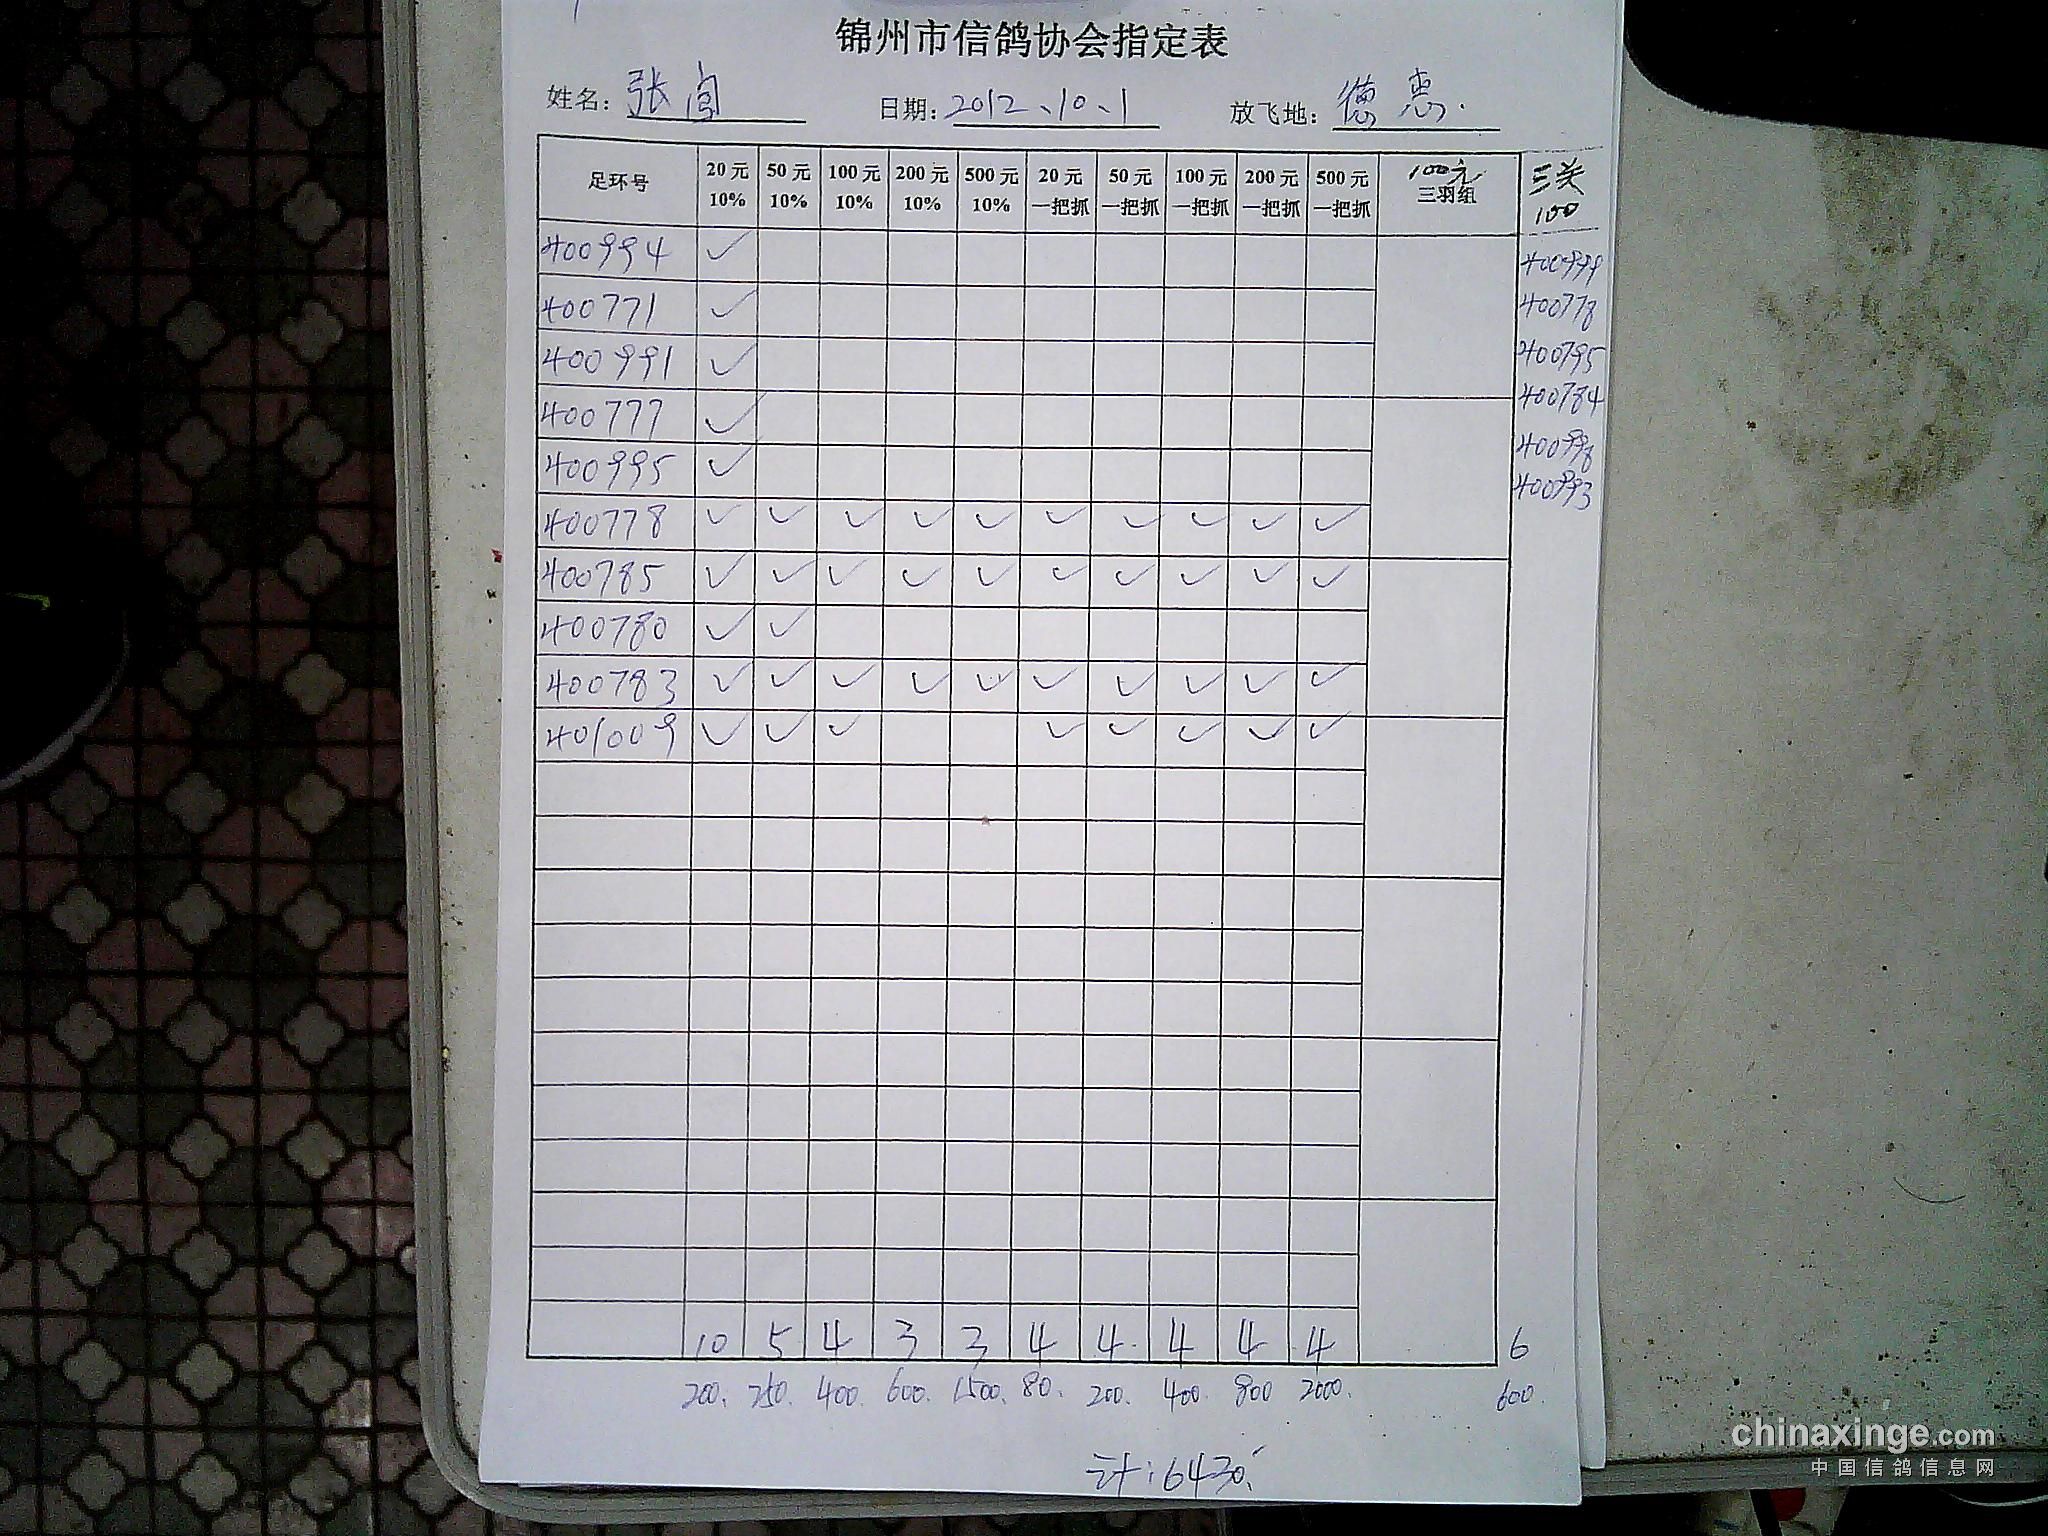 锦州市信鸽协会指定表
姓名: 张闯 日期: 2012、10、1 放飞地: 德惠.
足环号 20元 10% 50元 10% 100元 10% 200元 10% 500元 10% 20元 一把抓 50元 一把抓 100元 一把抓 200元 一把抓 500元 一把抓 100元 三羽组 三关 100
400994 ✓
400999
400771 ✓
400778
400991 ✓
400795
400777 ✓
400784
400995 ✓
400998
400993
400778 ✓ ✓ ✓ ✓ ✓ ✓ ✓ ✓ ✓ ✓
400785 ✓ ✓ ✓ ✓ ✓ ✓ ✓ ✓ ✓ ✓
400780 ✓ ✓
400783 ✓ ✓ ✓ ✓ ✓ ✓ ✓ ✓ ✓ ✓
401009 ✓ ✓ ✓ ✓ ✓ ✓ ✓ ✓
10 5 4 3 3 4 4. 4 4 4 6
200. 250. 400. 600. 1500. 80. 200. 400. 800 2000. 600.
计:6430.
chinaxinge.com
中国信鸽信息网